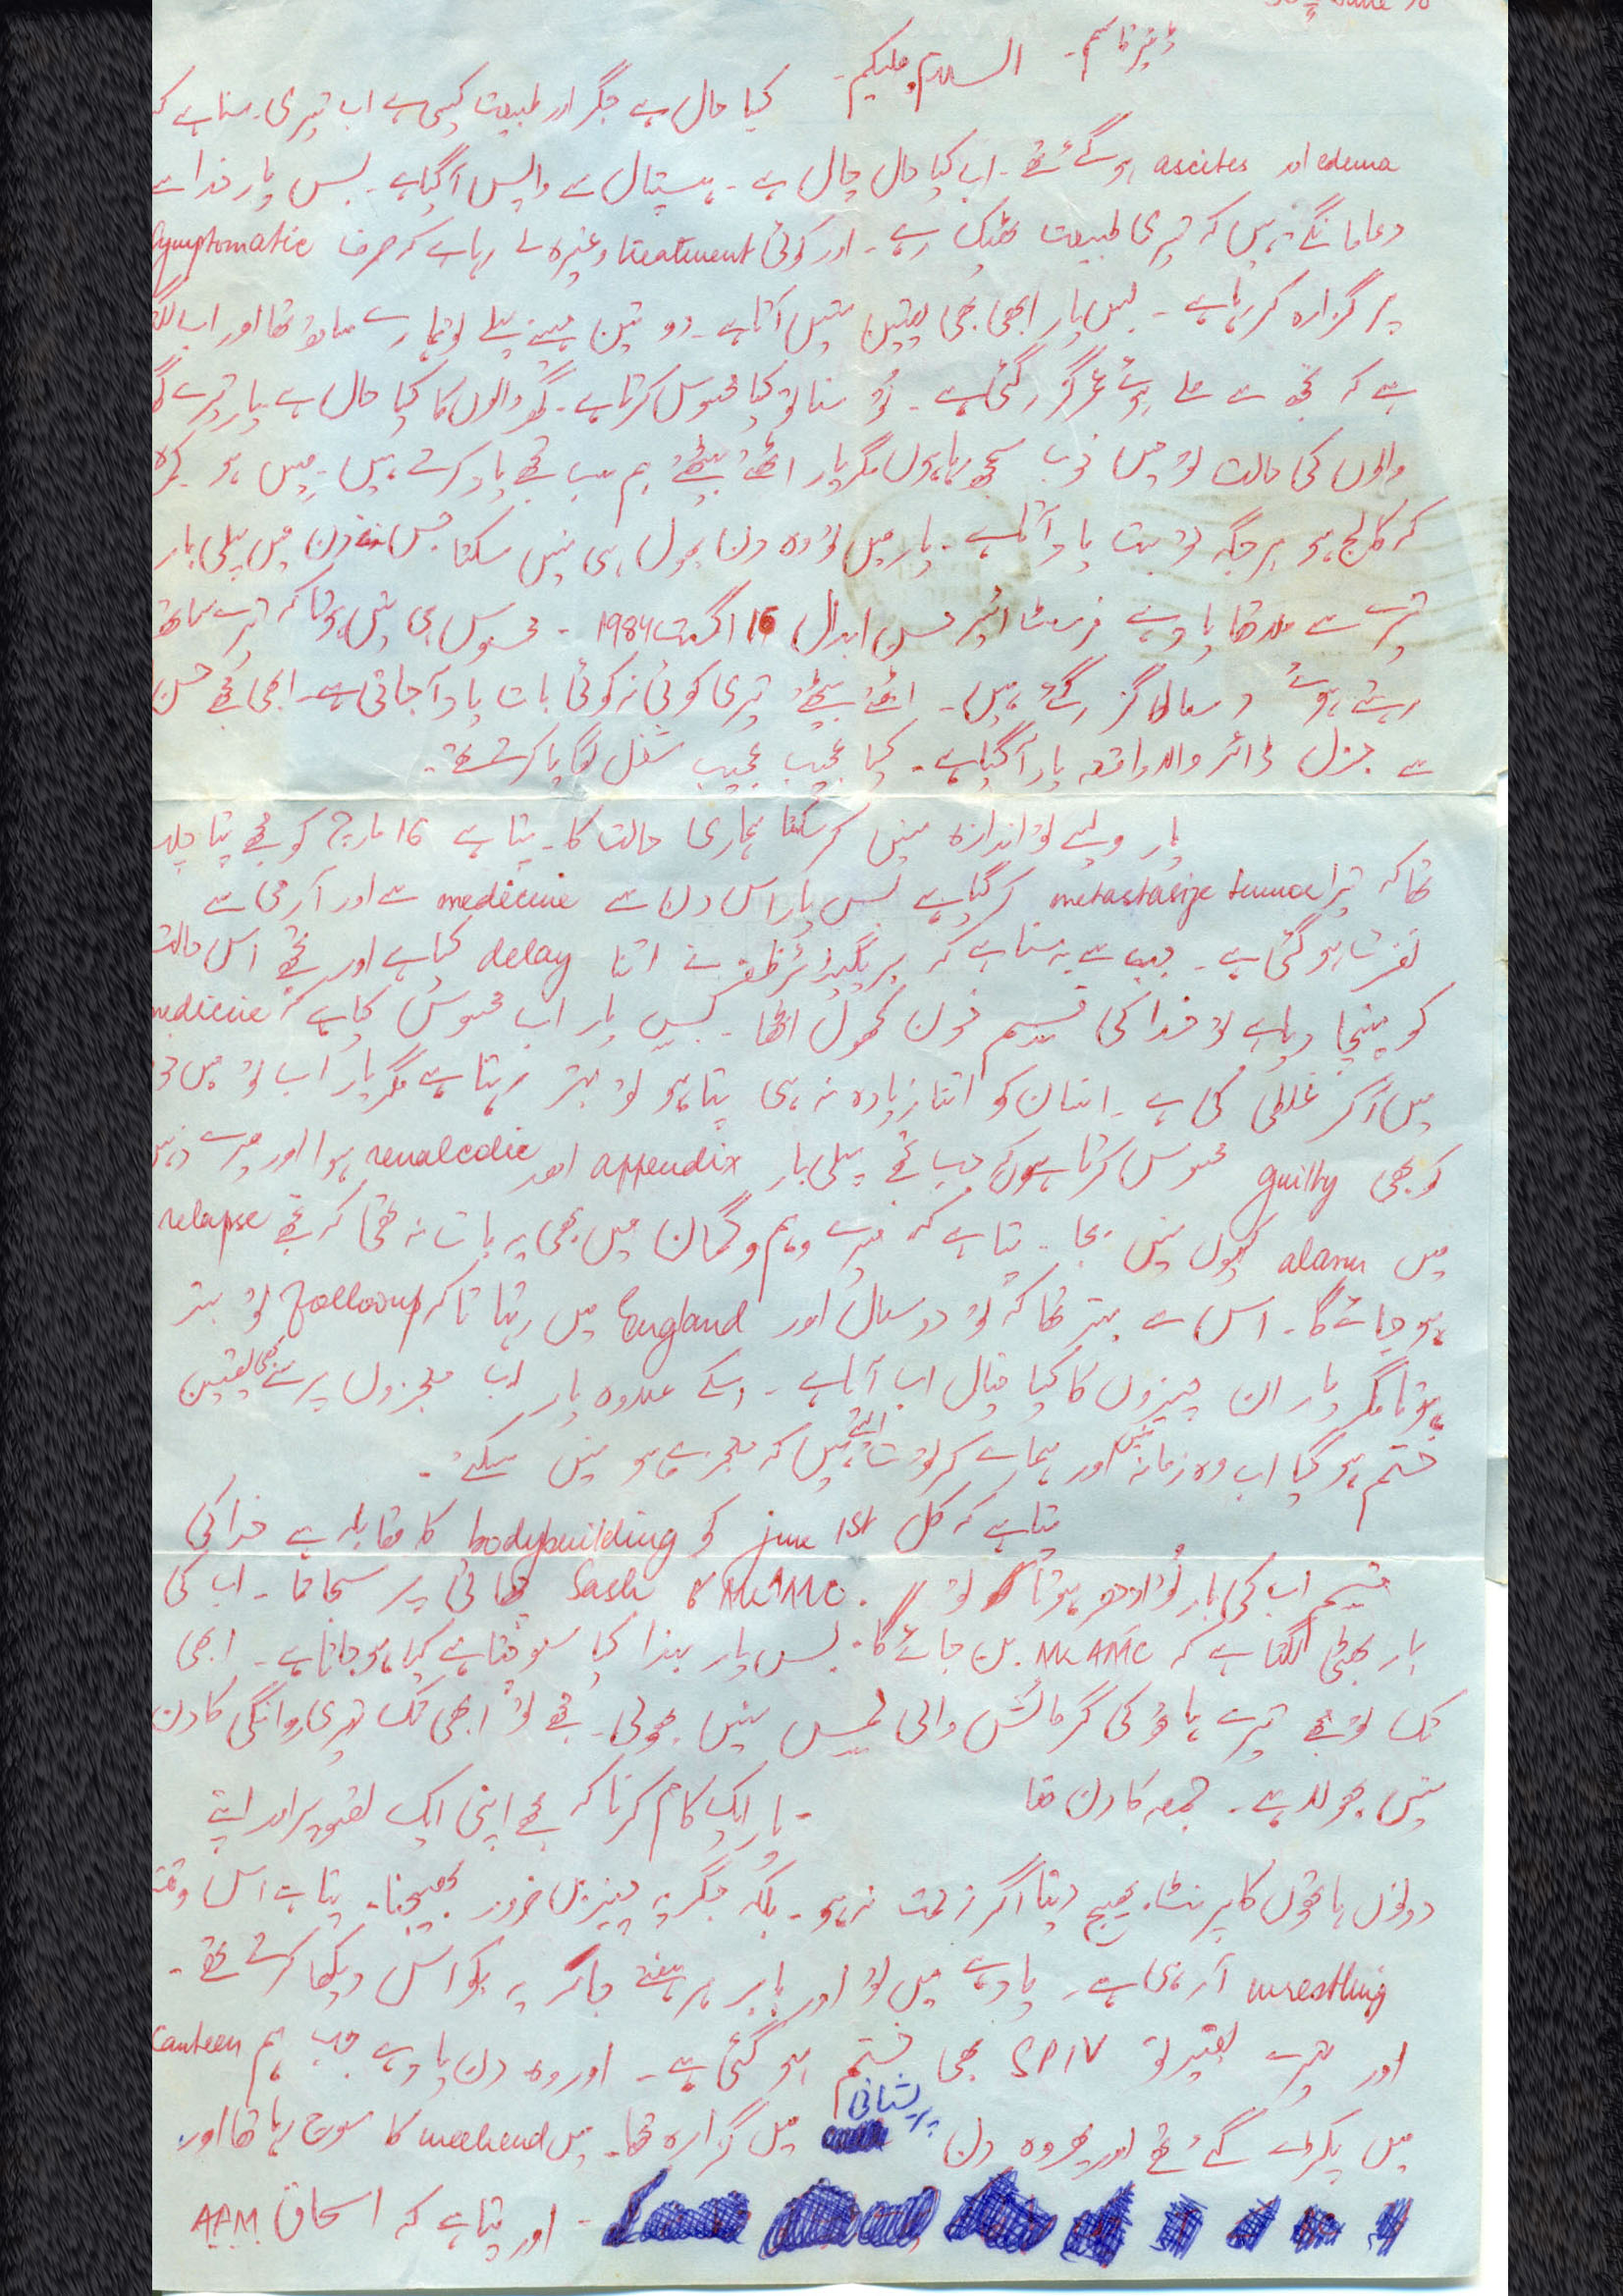 ڈئیر قاسم۔ السلام علیکم۔
کیا حال ہے جگر اور طبیعت کیسی ہے اب تیری۔ سنا ہے کہ
edema اور ascites ہو گئے تھے۔ اب کیا حال چال ہے۔ ہسپتال سے واپس آگیا ہے۔ بس یار خدا سے
دعا مانگتے ہیں کہ تیری طبیعت ٹھیک رہے۔ اور کوئی treatment وغیرہ لے رہا ہے کہ صرف Symptomatic
پر گزارہ کر رہا ہے۔ بس یار ابھی بھی یقین نہیں آتا ہے۔ دو تین مہینے پہلے تو ہمارے ساتھ تھا اور اب لگتا
ہے کہ تجھ سے ملے ہوئے عمر گزر گئی ہے۔ تو سنا تو کیا محسوس کرتا ہے۔ گھر والوں کا کیا حال ہے۔ یار تیرے گھر
والوں کی حالت تو میں خوب سمجھ رہا ہوں مگر یار اٹھتے بیٹھتے ہم سب تجھے یاد کرتے ہیں۔ میس ہو کمرہ
کہ کالج ہو ہر جگہ تو بہت یاد آتا ہے۔ یار میں تو وہ دن بھول ہی نہیں سکتا جس دن میں پہلی بار
تیرے سے ملا تھا یاد ہے فرسٹ ائیر حسن ابدال 16 اگست 1984۔ محسوس ہی نہیں ہوتا کہ تیرے ساتھ
رہتے ہوئے سال گزر گئے ہیں۔ اٹھتے بیٹھتے تیری کوئی نہ کوئی بات یاد آجاتی ہے۔ ابھی مجھے حسن
سے جنرل ڈائر والا واقعہ یاد آگیا ہے۔ کیا عجیب عجیب شغل لگایا کرتے تھے۔
یار ویسے تو اندازہ نہیں کر سکتا ہماری حالت کا۔ پتا ہے 16 مارچ کو مجھے پتا چلا
تھا کہ تیرا tumor metastasize کر گیا ہے بس یار اس دن سے medicine سے اور آرمی سے
نفرت ہو گئی ہے۔ جب سے یہ سنا ہے کہ بریگیڈئر ظفر نے اتنا delay کیا ہے اور تجھے اس حالت
کو پہنچا دیا ہے تو خدا کی قسم خون کھول اٹھا۔ بس یار اب محسوس کیا ہے کہ medicine
میں آکر غلطی کی ہے۔ انسان کو اتنا زیادہ نہ ہی پتا ہو تو بہتر رہتا ہے مگر یار اب تو میں خود
کو بھی guilty محسوس کرتا ہوں کہ جب تجھے پہلی بار appendix اور renal colic ہوا اور میرے ذہن
میں alarm کیوں نہیں بجا۔ پتا ہے کہ میرے وہم و گمان میں بھی یہ بات نہ تھی کہ تجھے relapse
ہو جائے گا۔ اس سے بہتر تھا کہ تو دو سال اور England میں رہتا تاکہ followup تو بہتر
ہوتا مگر یار ان چیزوں کا کیا خیال اب آتا ہے۔ اسکے علاوہ یار اب معجزوں پر سے بھی یقین
ختم ہو گیا اب وہ زمانہ نہیں اور ہمارے کرتوت ایسے ہیں کہ معجزے ہو نہیں سکتے۔
پتا ہے کہ کل june 1st کو bodybuilding کا مقابلہ ہے خدا کی
قسم اب کی بار تو ادھر ہوتا تو Mr AMC کا Sash چھاتی پر سجاتا۔ اب کی
بار بھٹی لگتا ہے کہ Mr AMC بن جائے گا۔ بس یار بندا کیا سوچتا ہے کیا ہو جاتا ہے۔ ابھی
تک تو مجھے تیرے ہاتھ کی گرمائش والی ٹیس نہیں بھولی۔ مجھے تو ابھی تک تیری روانگی کا دن
نہیں بھولا ہے۔ جمعہ کا دن تھا۔ یار ایک کام کرنا کہ مجھے اپنی ایک تصویر اور اپنے
دونوں ہاتھوں کا پرنٹ بھیج دینا اگر زحمت نہ ہو۔ بلکہ جگر یہ چیزیں ضرور بھیجنا۔ پتا ہے اس وقت
wrestling آ رہی ہے۔ یاد ہے میں تو اور بابر ہر ہفتے جا کر یہ بکواس دیکھا کرتے تھے۔
اور تیرے بغیر تو SPIV بھی ختم ہو گئی ہے۔ اور وہ دن یاد ہے جب ہم Canteen
میں پکڑے گئے تھے اور پھر وہ دن پریشانی میں گزارہ تھا۔ میں weekend کا سوچ رہا تھا اور
۔ اور پتا ہے کہ اسحاق A.P.M